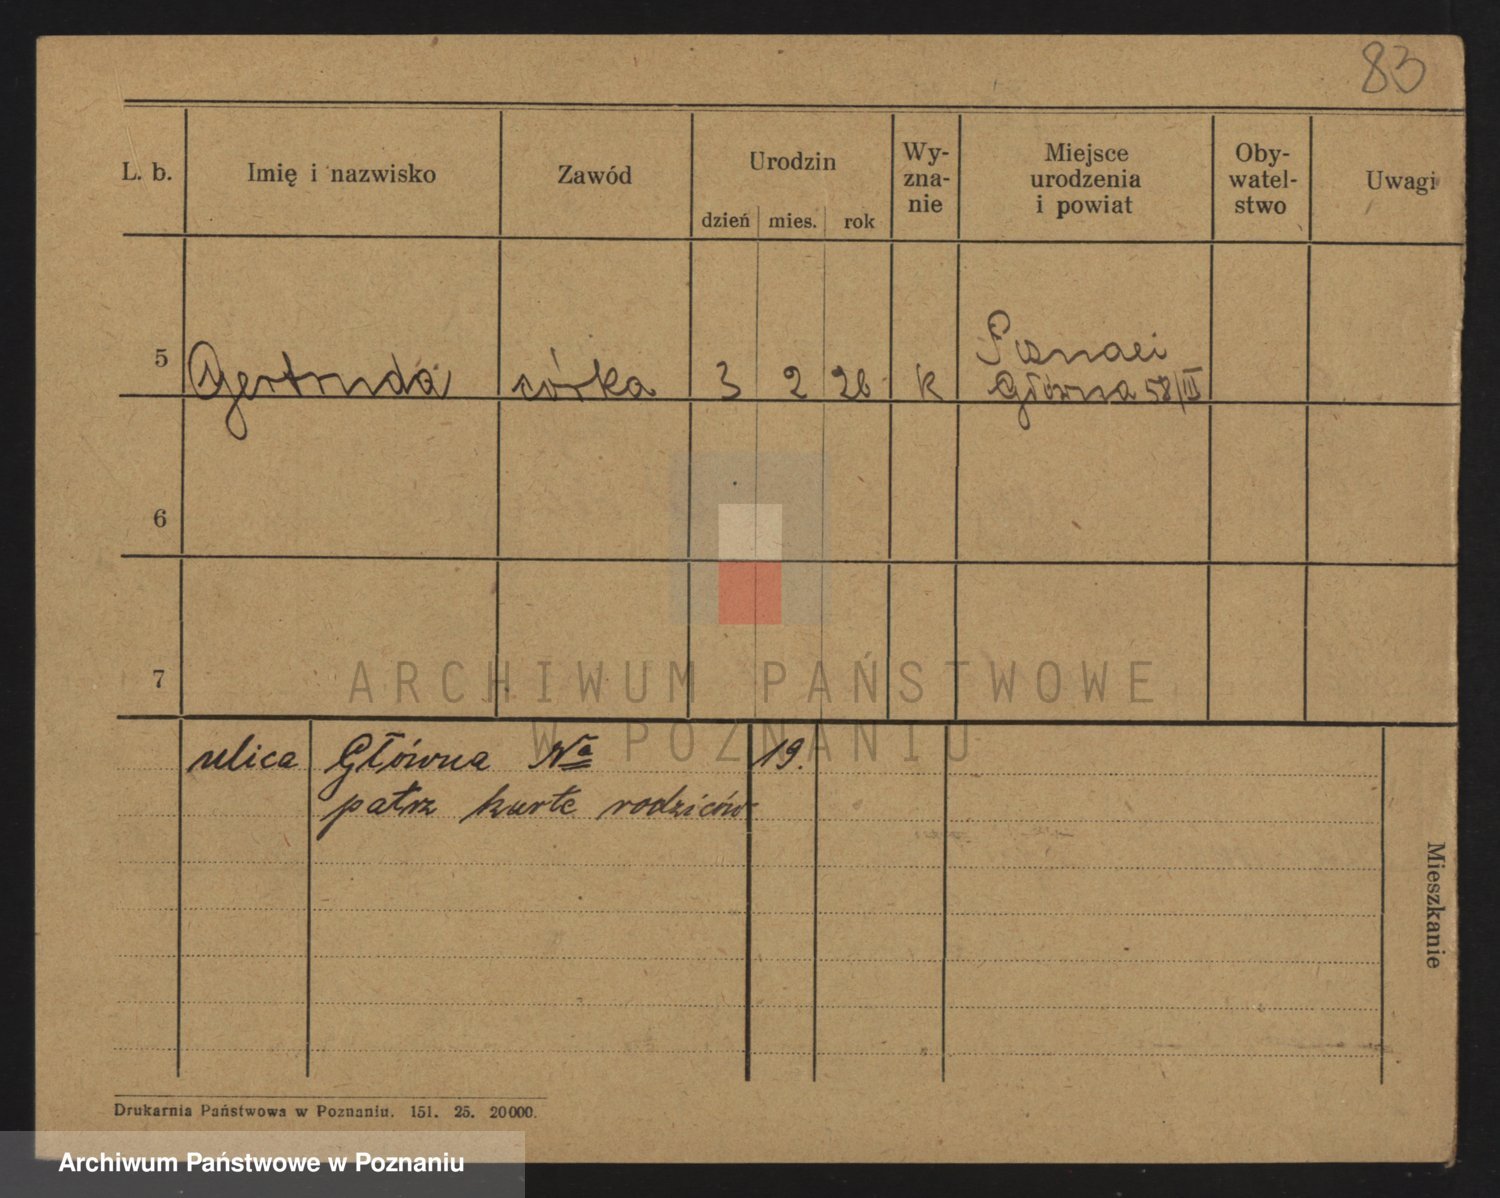 83
L. b. Imię i nazwisko Zawód Urodzin Wy-zna-nie Miejsce urodzenia i powiat Oby-watel-stwo Uwagi
dzień mies. rok
5 Gertruda córka 3 2 26 k Poznań
Główna 58/III
6
7
ARCHIWUM PAŃSTWOWE
W POZNANIU
ulica Główna No 19.
patrz kartę rodziców
Mieszkanie
Drukarnia Państwowa w Poznaniu. 151. 25. 20000.
Archiwum Państwowe w Poznaniu